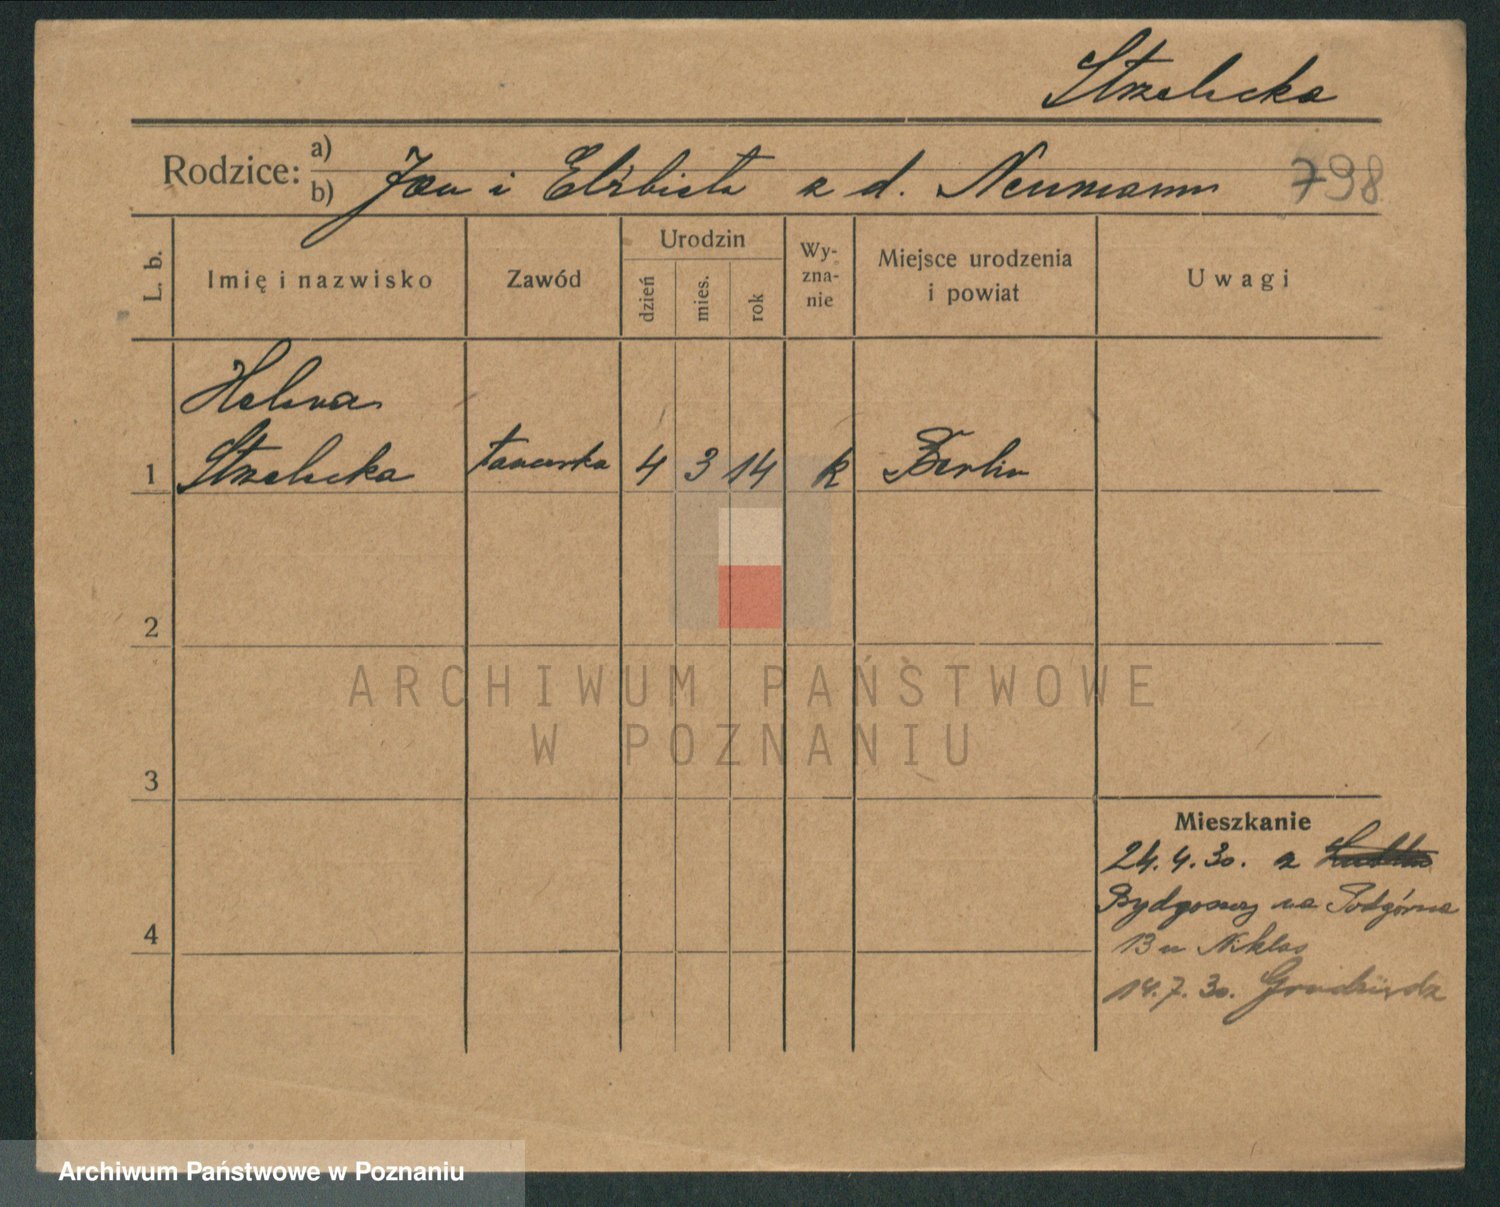 Strzelecka
Rodzice: a)
b) Jan i Elżbieta z d. Neumann 798
L. b. Imię i nazwisko Zawód Urodzin dzień mies. rok Wy-zna-nie Miejsce urodzenia i powiat Uwagi
Helena
1 Strzelecka tancerka 4 3 14 k Berlin
2
ARCHIWUM PAŃSTWOWE
W POZNANIU
3
Mieszkanie
24.4.30. z
Bydgoszczy na Podgórna
4
13 u Niklas
14.7.30. Grudziądz
Archiwum Państwowe w Poznaniu